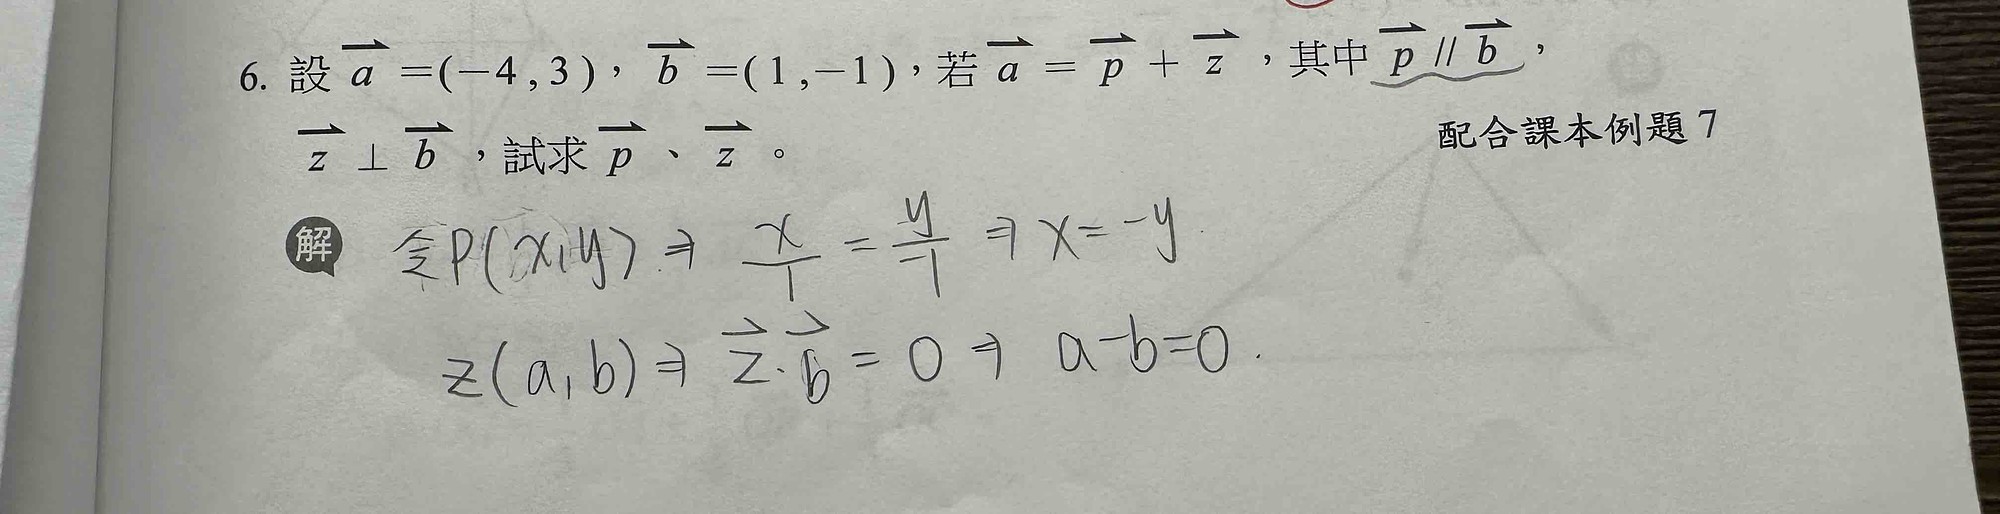 6. 設 a⃗ =(−4,3), b⃗ =(1,−1),若 a⃗ = p⃗ + z⃗ ,其中 p⃗ // b⃗ ,
z⃗ ⊥ b⃗ ,試求 p⃗ 、 z⃗ 。
配合課本例題 7
解 令P(x,y) ⇒ x/1 = y/−1 ⇒ x=−y
z(a,b) ⇒ z⃗·b⃗ = 0 ⇒ a−b=0.